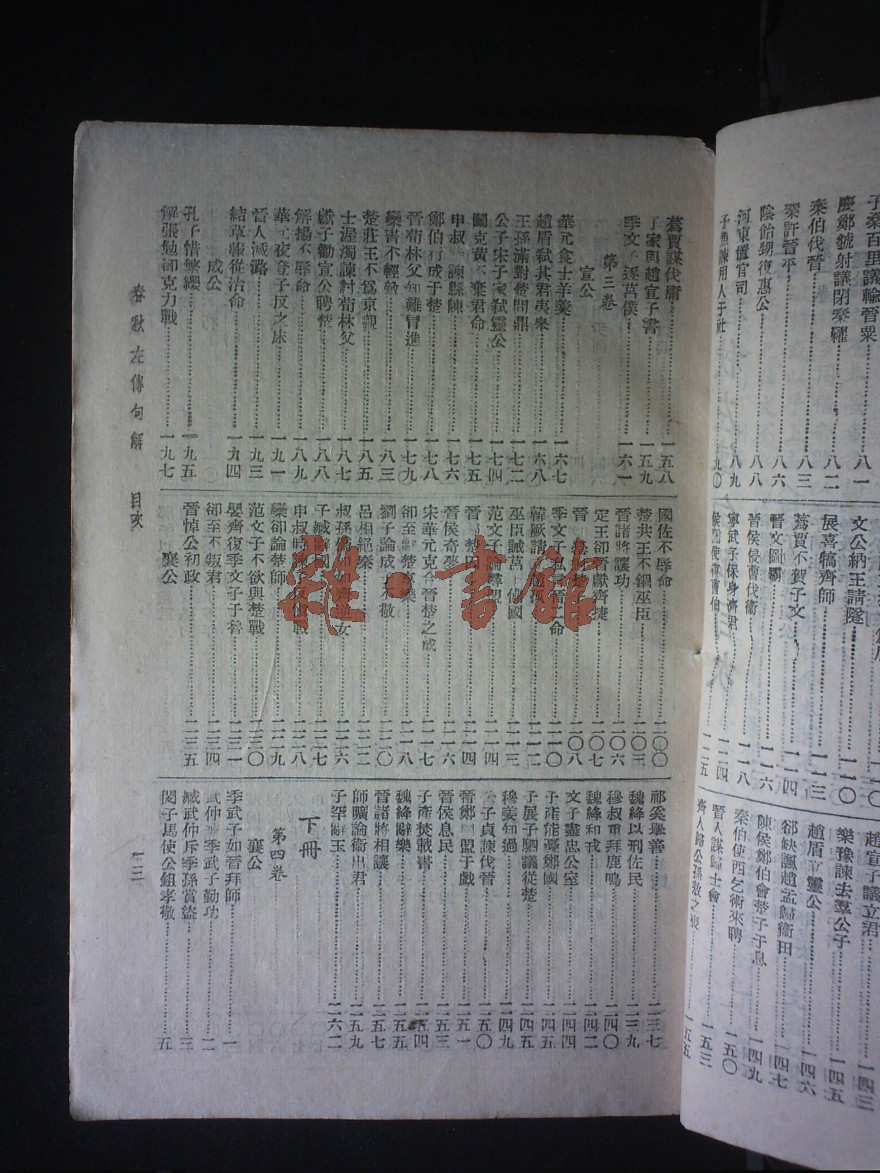 蒍賈謀伐庸……一五八
子家與趙宣子書……一五九
季文子逐莒僕……一六一
第三卷
宣公
華元食士羊羹……一六七
趙盾弑其君夷臯……一六八
王孫滿對楚問鼎……一七二
公子宋子家弑靈公……一七四
鬬克黃不棄君命……一七五
申叔時諫縣陳……一七六
鄭伯行成于楚……一七八
晉荀林父知難冒進……一七九
欒書不輕敵……一八三
楚莊王不爲京觀……一八五
士渥濁諫討荀林父……一八七
獻子勸宣公聘楚……一八八
解揚不辱命……一八九
華元夜登子反之牀……一九一
晉人滅潞……一九三
結草報從治命……一九四
成公
孔子惜繁纓……一九五
解張勉郤克力戰……一九七
國佐不辱命……二〇〇
楚共王不錮巫臣……二〇三
晉諸將讓功……二〇六
定王卻晉獻齊捷……二〇七
季文子私言晉命……二一〇
晉侯奇夢……二一六
宋華元克合晉楚之成……二一七
郤至辭楚享樂……二一八
劉子論成子不敬……二二〇
呂相絕秦……二二二
子臧辭國……二二七
申叔時諫子反偝戰……二二八
欒郤論楚師……二二九
范文子不欲與楚戰……二三〇
嬰齊復季文子于魯……二三一
郤至不叛君……二三四
晉悼公初政……二三五
襄公
祁奚舉善……二三七
魏絳以刑佐民……二三九
穆叔重拜鹿鳴……二四〇
魏絳和戎……二四二
文子盡忠公室……二四四
子產能憂鄭國……二四五
子展子駟議從楚……二四五
穆姜知過……二四九
子貞諫伐晉……二五〇
晉鄭同盟于戲……二五一
晉侯息民……二五三
子產焚載書……二五四
魏絳辭樂……二五五
晉諸將相讓……二五七
師曠論衞出君……二五九
子罕辭玉……二六二
下冊
第四卷
襄公
季武子如晉拜師……一
武仲論季武子勤功……二
臧武仲斥季孫賞盜……三
閔子馬使公鉏孝敬……五
春秋左傳句解 目次
一三
子桑百里議輸晉粟……八一
慶鄭虢射議閉秦糴……八二
秦伯伐晉……八三
秦許晉平……八六
陰飴甥復惠公……八八
河東置官司……八九
子魚諫用人于社……九〇
文公納王請隧……一一〇
展喜犒齊師……一一三
蒍賈不賀子文……一一四
晉文圖霸……一一六
晉侯侵曹伐衞……一一八
甯武子保身濟君……一二四
趙宣子議立君……一四三
樂豫諫去羣公子……一四五
趙盾立靈公……一四六
郤缺諷趙孟歸衞田……一四七
陳侯鄭伯會楚子于息……一四九
秦伯使西乞術來聘……一五〇
晉人謀歸士會……一五三
齊人歸公孫敖之喪……一五五
雜·書館